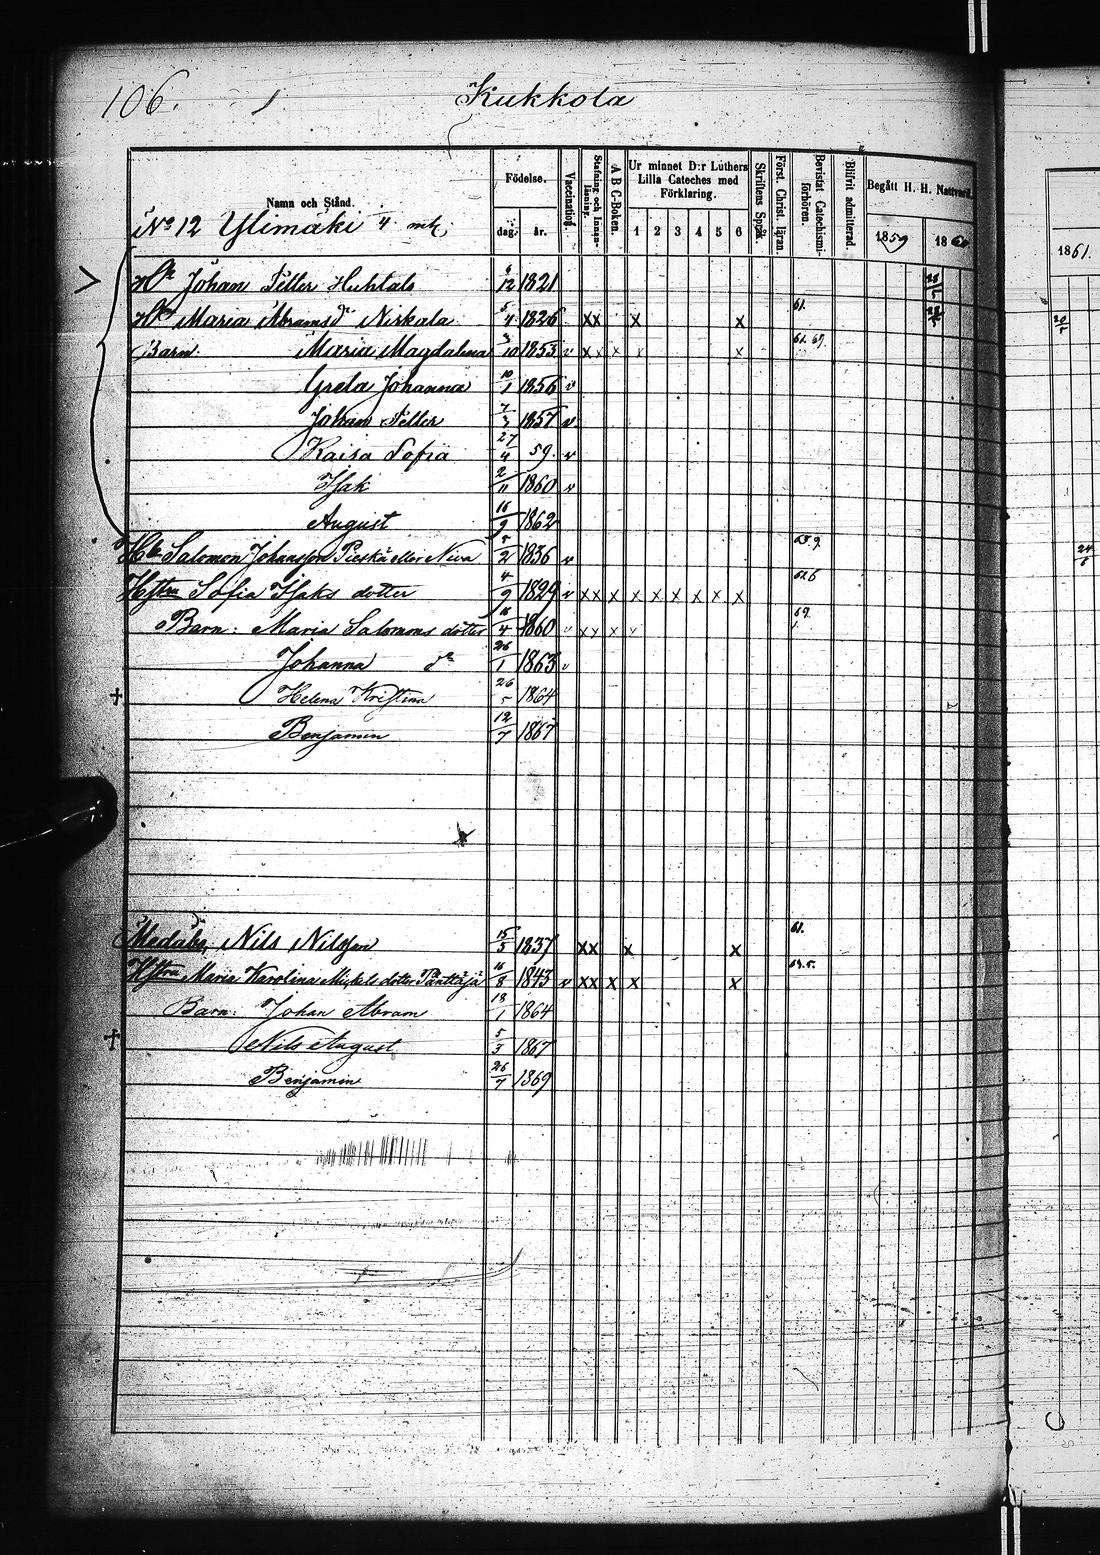 106.
Kukkola
Namn och Stånd.
Födelse.
dag. år.
Vaccination.
Stafning och Innanläsning.
A B C-Boken.
Ur minnet D:r Luthers Lilla Cateches med Förklaring.
1 2 3 4 5 6
Skriftens Språk.
Först. Christ. läran.
Bevistat Catechismiförhören.
Blifvit admitterad.
Begått H. H. Nattvard.
1859 1860
1861.
No 12 Ylimäki 4 mtl.
Johan Petter Huhtala 12 1821
Maria Abramsdr Niskala 5/4 1826 xx x x 61.
Barn: Maria Magdalena 3/10 1853 v x x x v x 61. 67.
Greta Johanna 10/1 1856 v
Johan Petter 7/3 1857 v
Kaisa Sofia 27/4 59. v
Isak 2/11 1860 v
August 16/9 1862
Salomon Johansson Pieskä eller Niva 5/2 1836 v
Hstru Sofia Isaks dotter 4/9 1829 v x x x x x x x x x
Barn: Maria Salomons dotter 16/4 1860 v x x x v
Johanna do 26/1 1863 v
† Helena Kristina 26/5 1864
Benjamin 12/7 1867
Nils Nilsson 15/3 1837 xx x x 61.
Hstru Maria Karolina Mickels dotter Pänttäjä 16/8 1843 v xx x x x
Barn: Johan Abram 18/1 1864
† Nils August 5/3 1867
Benjamin 26/7 1869